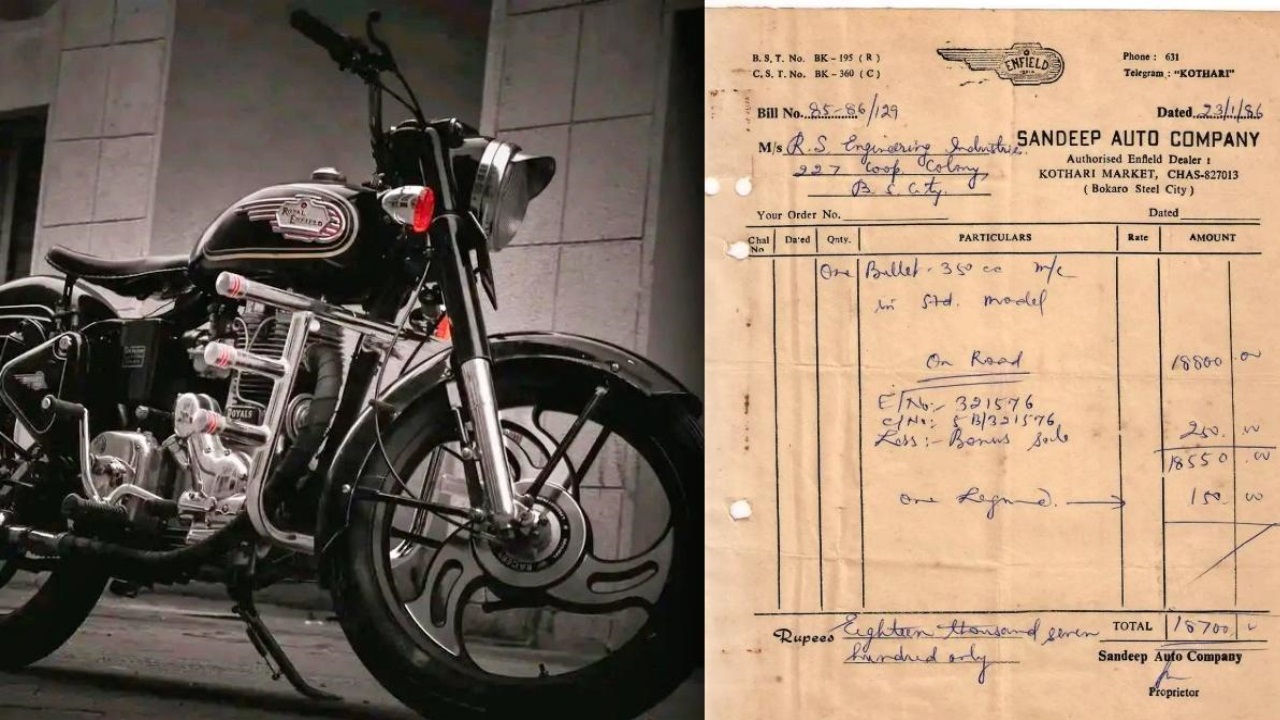 ROYAL
ENFIELD
ROYALE
B.S.T. No. BK-195 (R)
C.S.T. No. BK-360 (C)
ENFIELD
Phone: 631
Telegram: "KOTHARI"
Bill No. 85-86/129
Dated 23/1/86
M/s R.S Engineering Industries.
227 Coop. Colony,
B. S. City.
SANDEEP AUTO COMPANY
Authorised Enfield Dealer:
KOTHARI MARKET, CHAS-827013
(Bokaro Steel City)
Your Order No.
Dated
Chal No Dated Qnty. PARTICULARS Rate AMOUNT
One Bullet. 350 cc m/c
in Std. model
On Road 18800.00
E/No:- 321576
C/No:- 5B/321576
Less:- Bonus 250.00
18550.00
One Legguard. 150.00
Rupees Eighteen thousand seven
hundred only
TOTAL 18700
Sandeep Auto Company
Proprietor